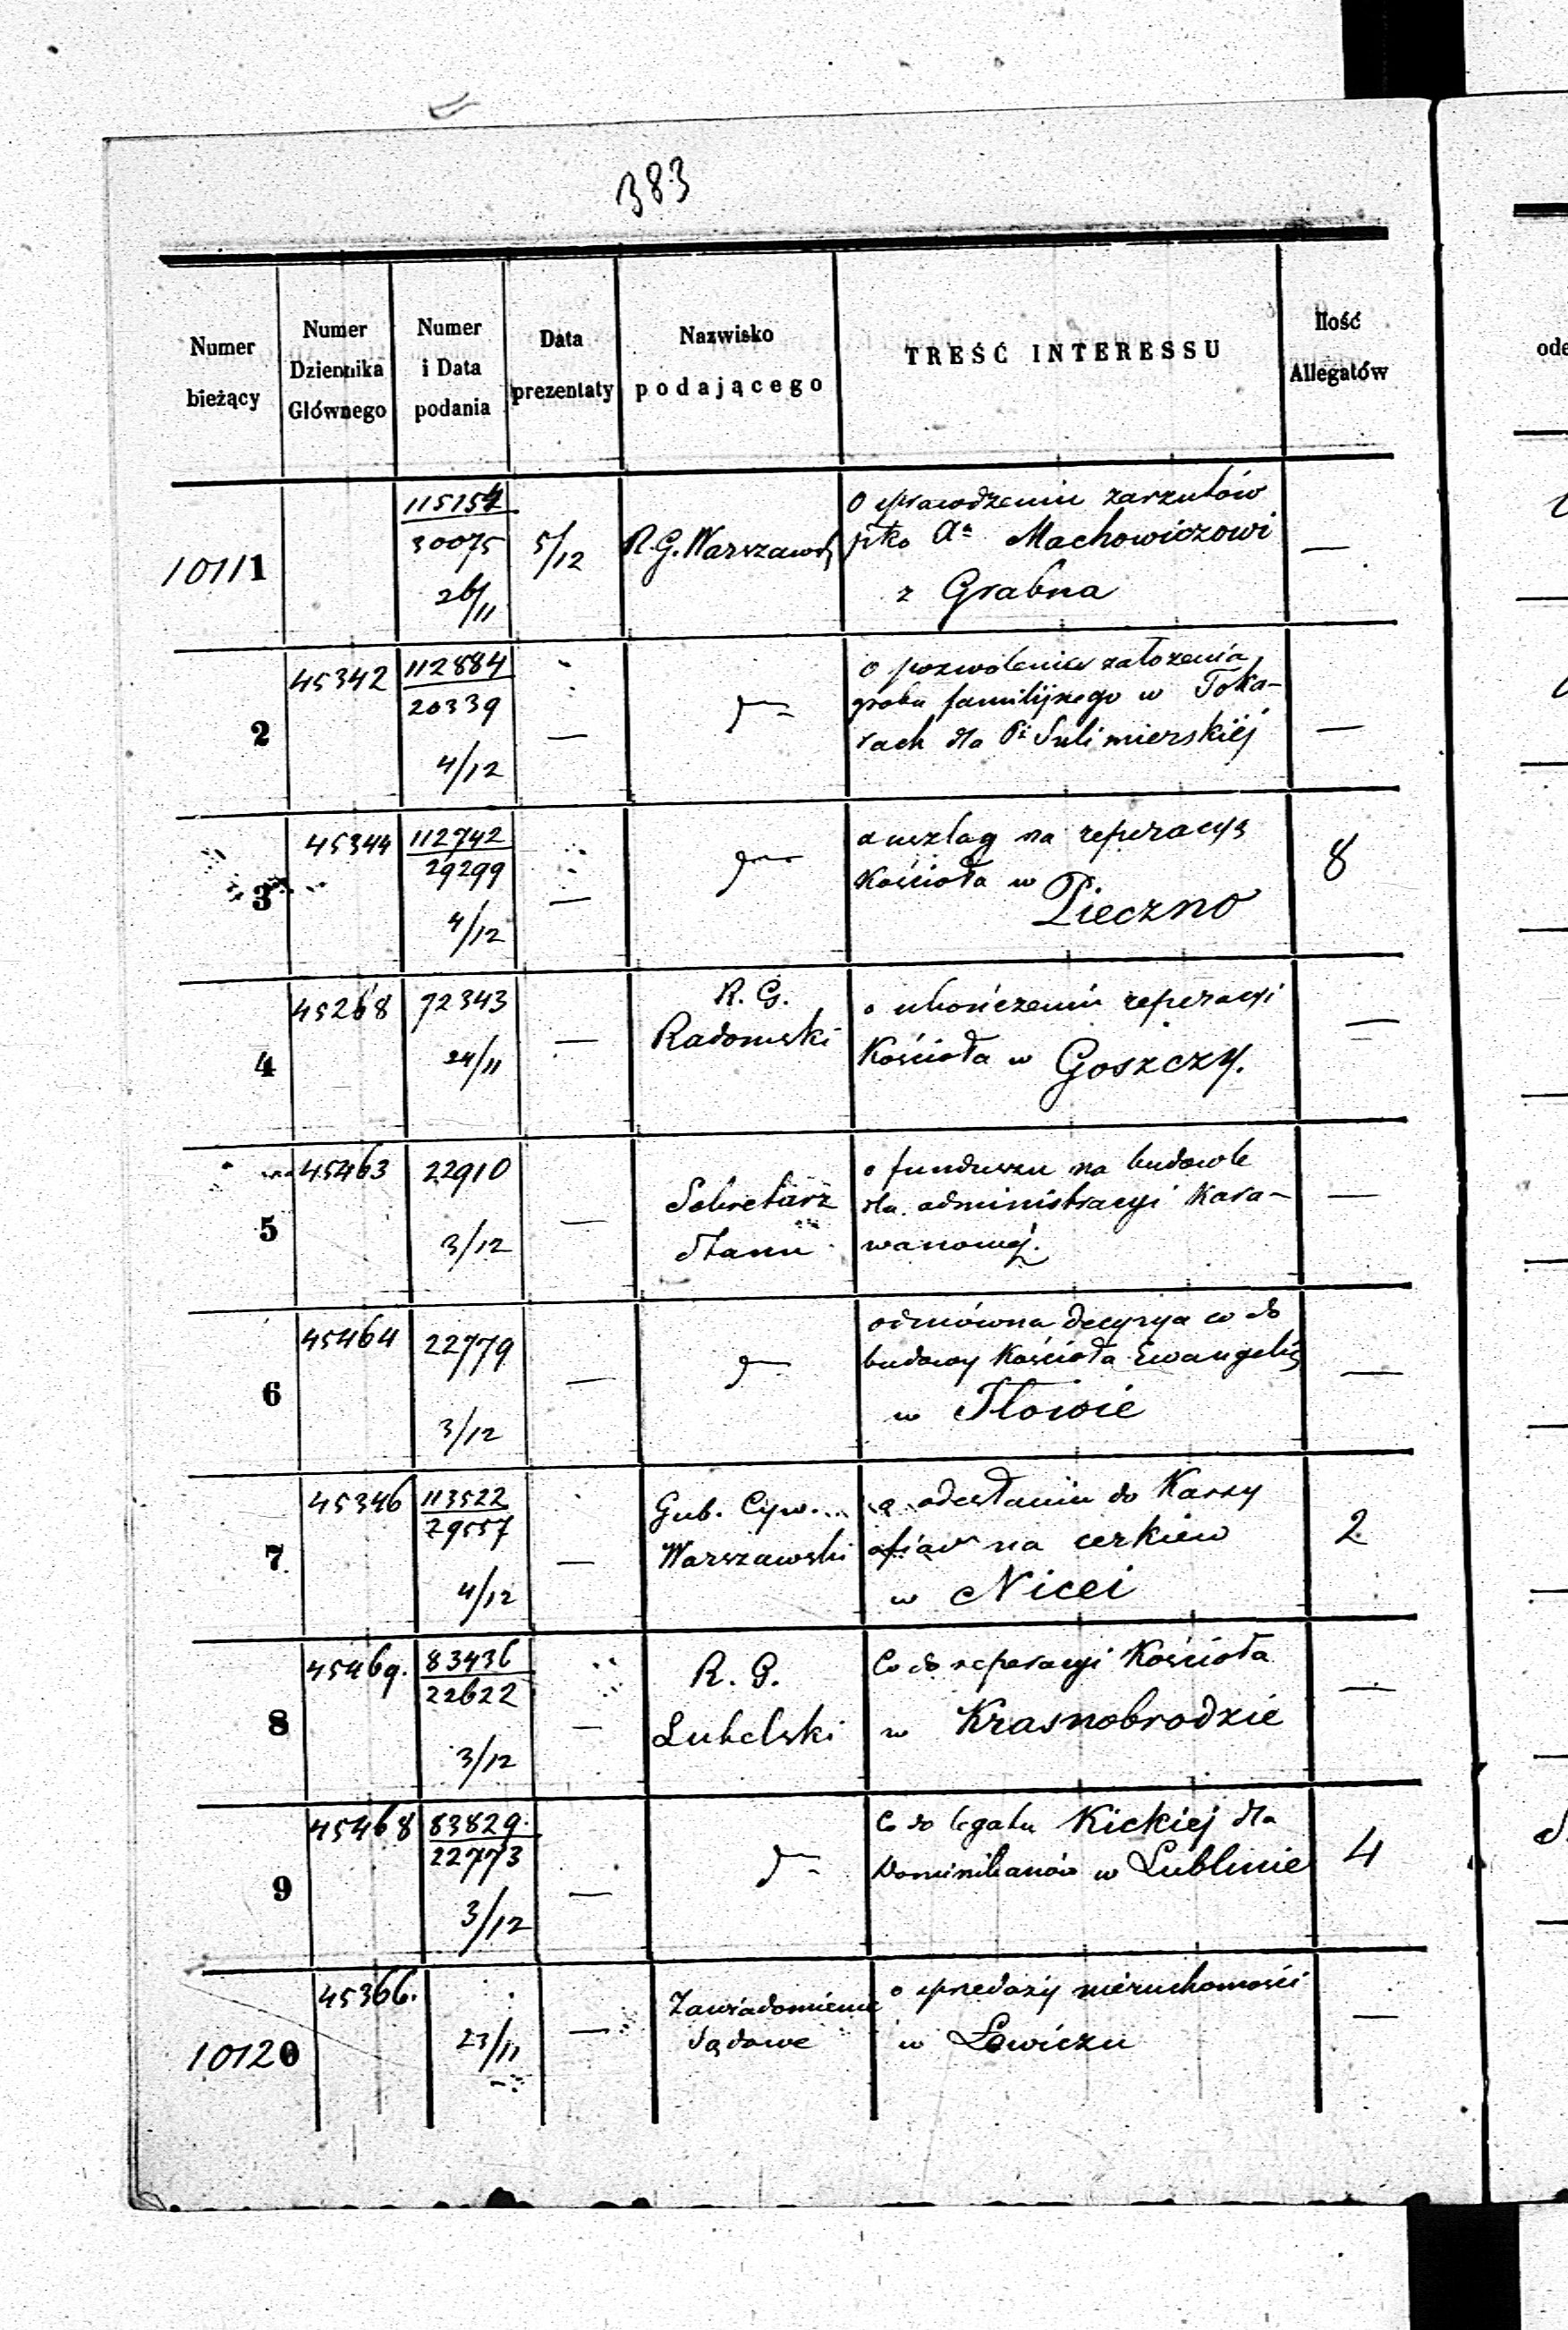 383
Numer bieżący
Numer Dziennika Głównego
Numer i Data podania
Data prezentaty
Nazwisko podającego
TREŚĆ INTERESSU
Ilość Allegatów
10111
115154
30075
26/11
5/12
R. G. Warszaws
O sprawdzeniu zarzutów
ptko Machowiczowi
z Grabna
—
2
45342
112884
20339
4/12
—
O pozwolenie założenia
grobu familijnego w Toka-
rach dla Pi Sulimierskiéj
—
3
45344
112742
29299
4/12
—
anszlag na reperacyą
Kościoła w
Pieczno
8
4
45268
72343
24/11
—
R. G.
Radomski
o ukończeniu reperacyi
Kościoła w Goszczy.
—
5
45463
22910
3/12
—
Sekretarz
Stanu
o funduszu na budowle
dla administracyi Kara-
wanowéj.
—
6
45464
22779
3/12
—
odmówna decyzya co do
budowy Kościoła Ewangelic
w Iłowie
—
7
45346
113522
29557
4/12
—
Gub. Cyw.
Warszawski
o odesłaniu do Kassy
ofiar na cerkiew
w Nicei
2
8
45469.
83436
22622
3/12
—
R. G.
Lubelski
Co do reperacyi Kościoła
w Krasnobrodzie
—
9
45468
83829.
22773
3/12
—
Co do legatu Kickiej dla
Dominikanów w Lublinie
4
10120
45366.
23/11
—
Zawiadomienie
Sądowe
o sprzedaży nieruchomości
w Łowiczu
—
ode